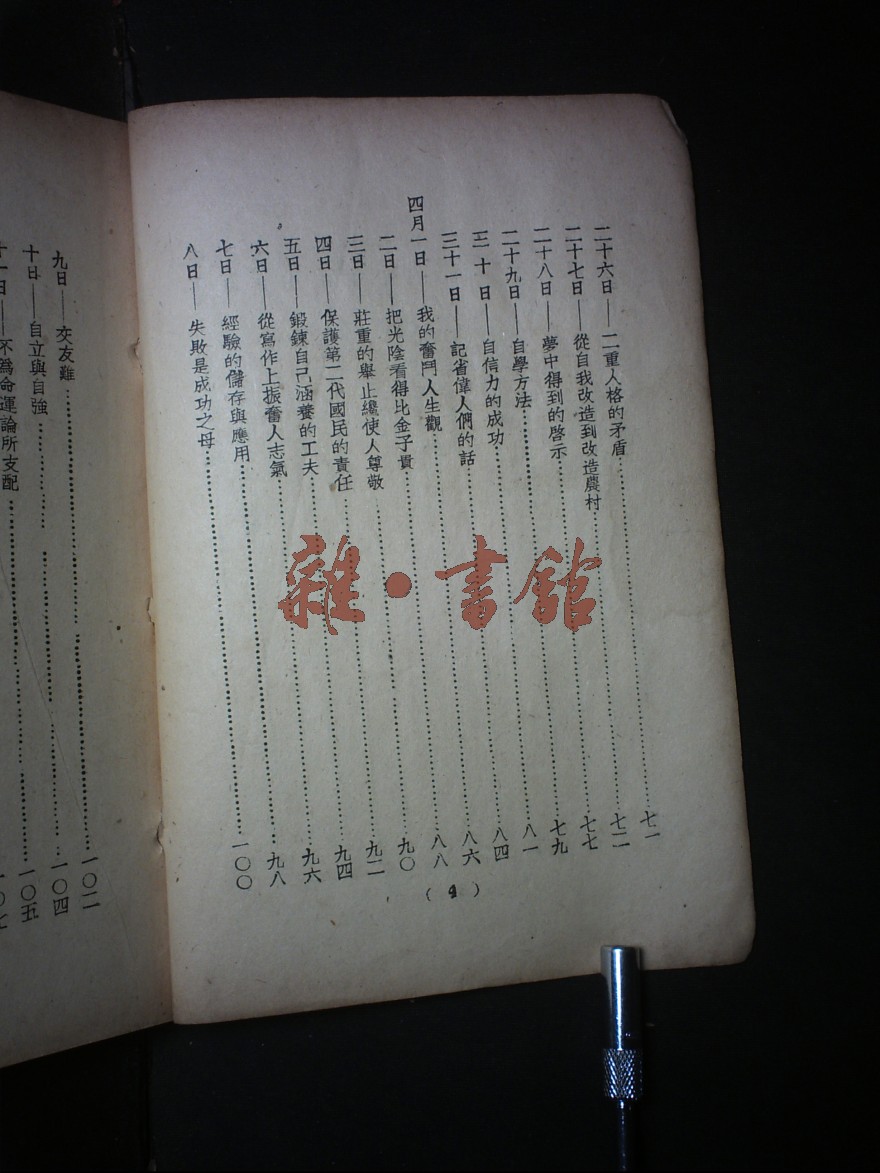 二十六日——二重人格的矛盾……七一
二十七日——從自我改造到改造農村……七二
二十八日——夢中得到的啓示……七七
二十九日——自學方法……七九
三十日——自信力的成功……八一
三十一日——記省偉人們的話……八四
四月一日——我的奮鬥人生觀……八六
二日——把光陰看得比金子貴……八八
三日——莊重的舉止纔使人尊敬……九〇
四日——保護第二代國民的責任……九二
五日——鍛鍊自己涵養的工夫……九四
六日——從寫作上振奮人志氣……九六
七日——經驗的儲存與應用……九八
八日——失敗是成功之母……一〇〇
（4）
九日——交友難……一〇二
十日——自立與自強……一〇四
十一日——不爲命運論所支配……一〇五
一〇七
雜·書館